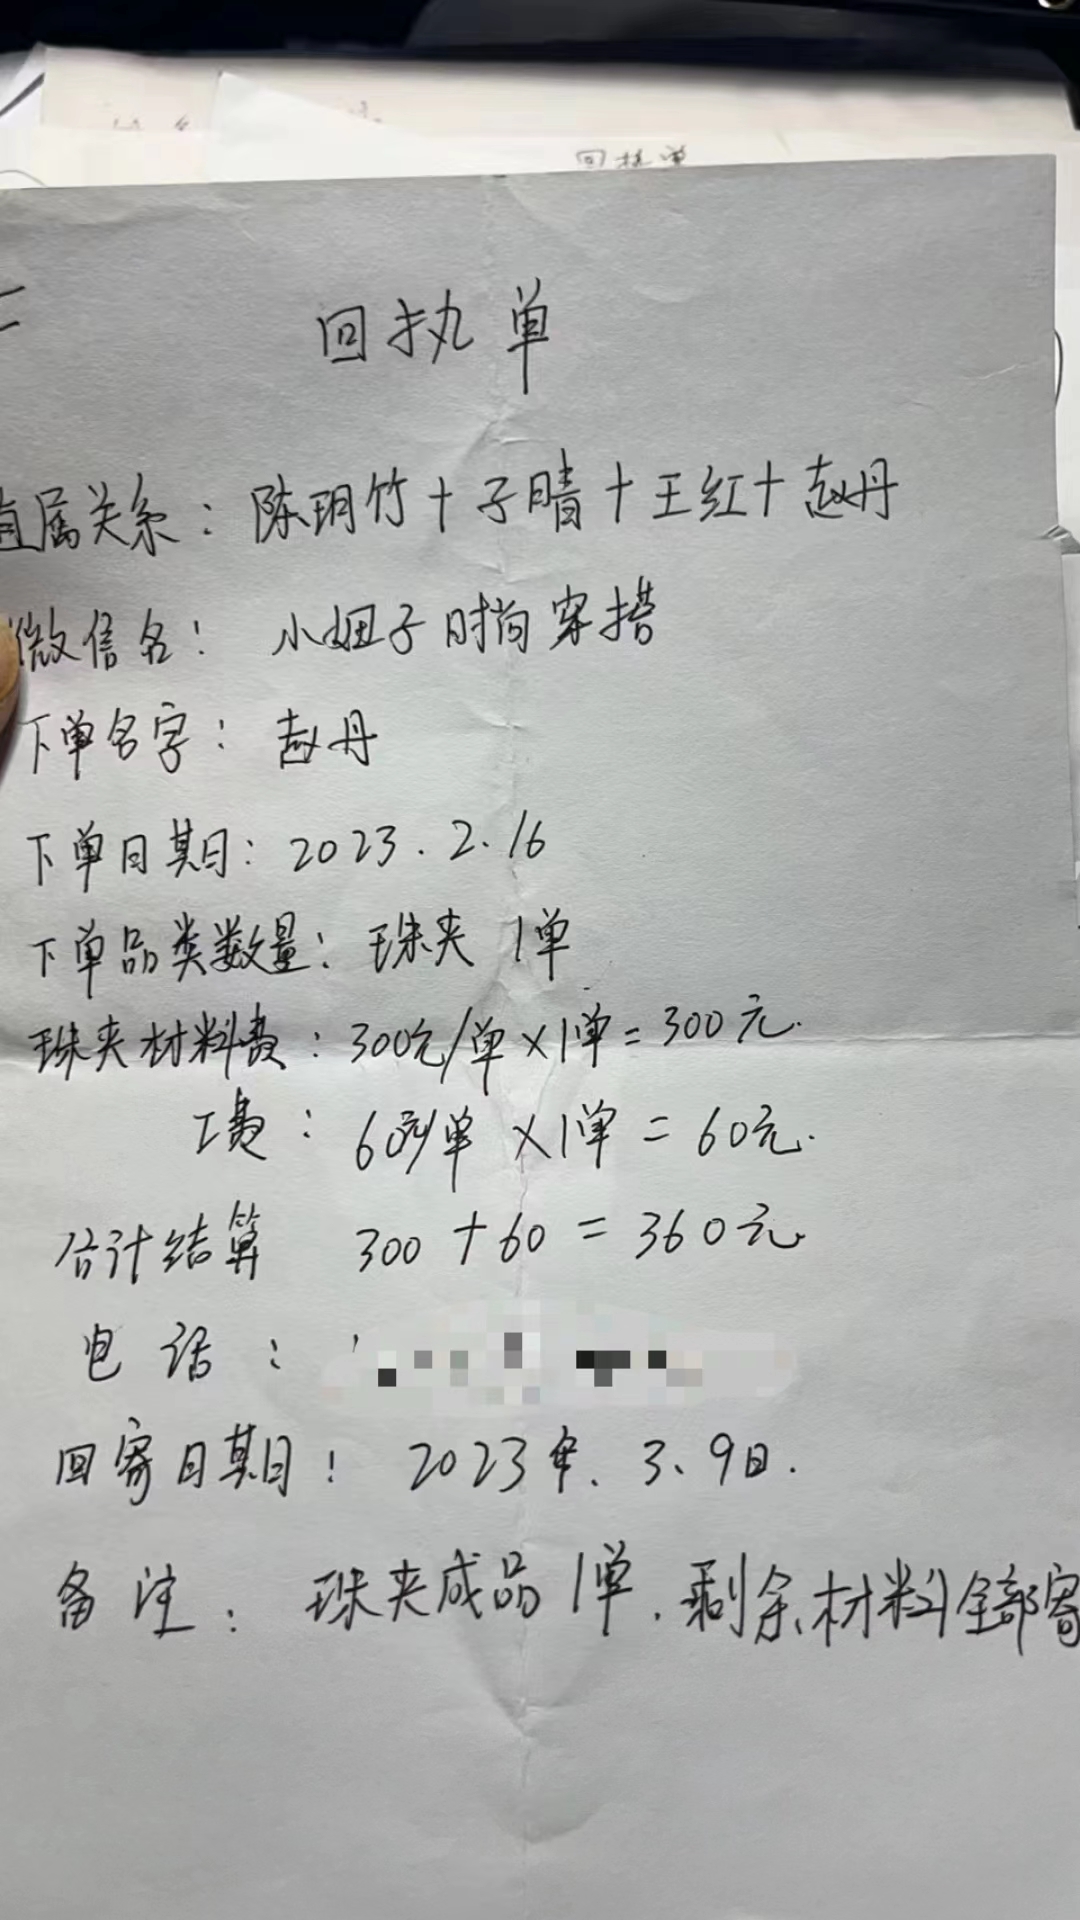 回执单
回执单
直属关系：陈玥竹+子晴+王红+赵丹
微信名：小妞子时尚穿搭
下单名字：赵丹
下单日期：2023.2.16
下单品类数量：珠夹 1单
珠夹材料费：300元/单×1单=300元.
工费：60元/单×1单=60元.
合计结算 300+60=360元.
电话：
回寄日期：2023年.3、9日.
备注：珠夹成品1单.剩余材料全部寄